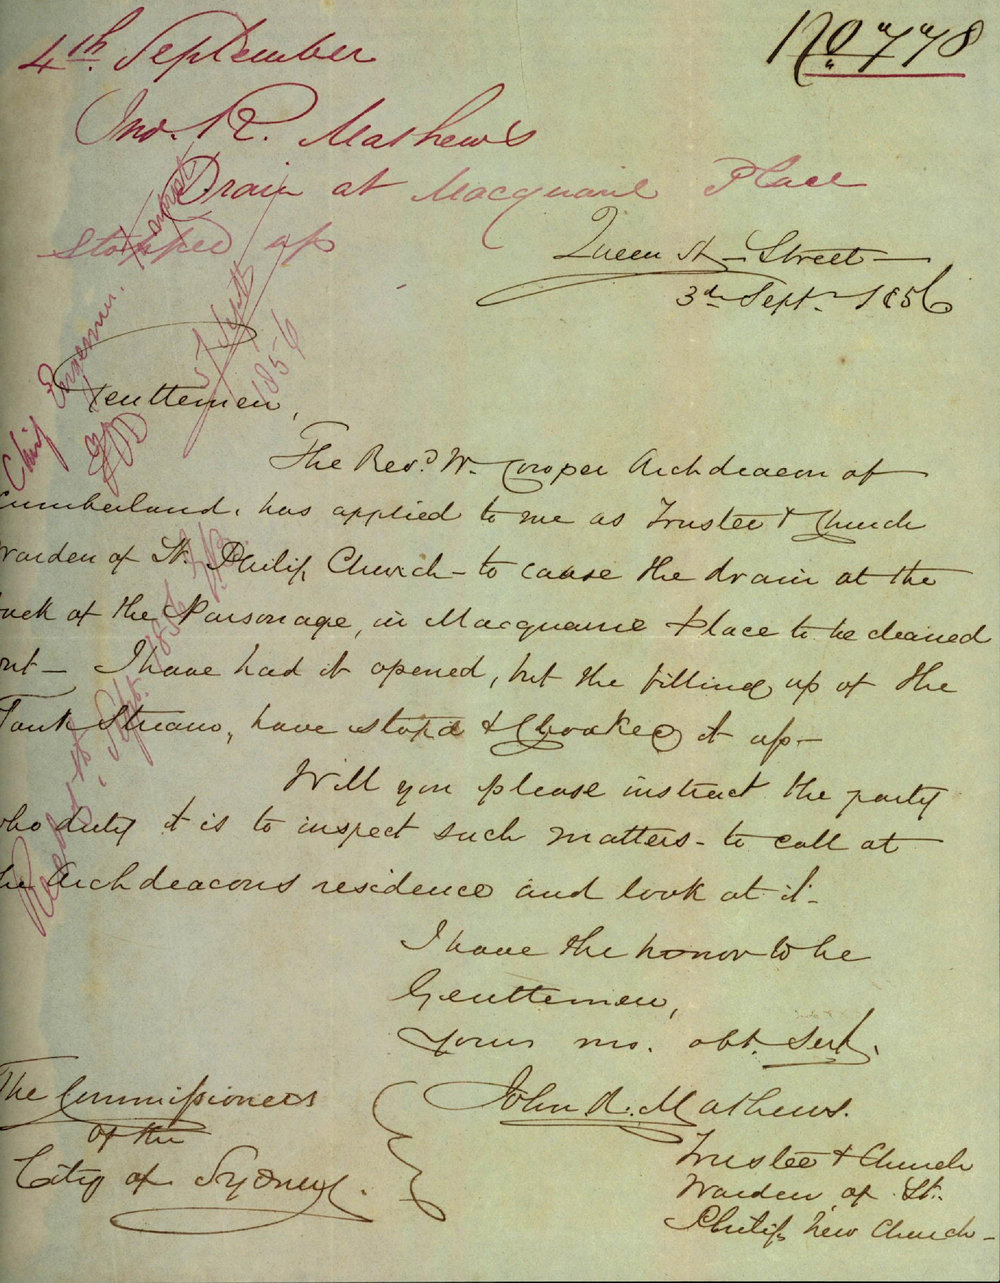 4th. September
No 778
Jno. R. Mathews
Drain at Macquarie Place
stopped up
Queen St - Street -
3rd Septr. 1856
Chief Engineer.
5 Septt
1856
Gentlemen,
The Revd. W. Cowper Archdeacon of
Cumberland, has applied to me as Trustee & Church
Warden of St. Philips Church - to cause the drain at the
back of the Parsonage, in Macquarie Place to be cleaned
out - I have had it opened, but the filling up of the
Tank Stream, have stopd & Choaked it up -
Will you please instruct the party
who duty it is to inspect such matters - to call at
the Archdeacons residence and look at it -
I have the honor to be
Gentlemen,
Yours mo. obt. Sert.
John R. Mathews.
Trustee & Church
Warden of St.
Philips New Church -
The Commissioners
of the
City of Sydney.
Sept. 1856